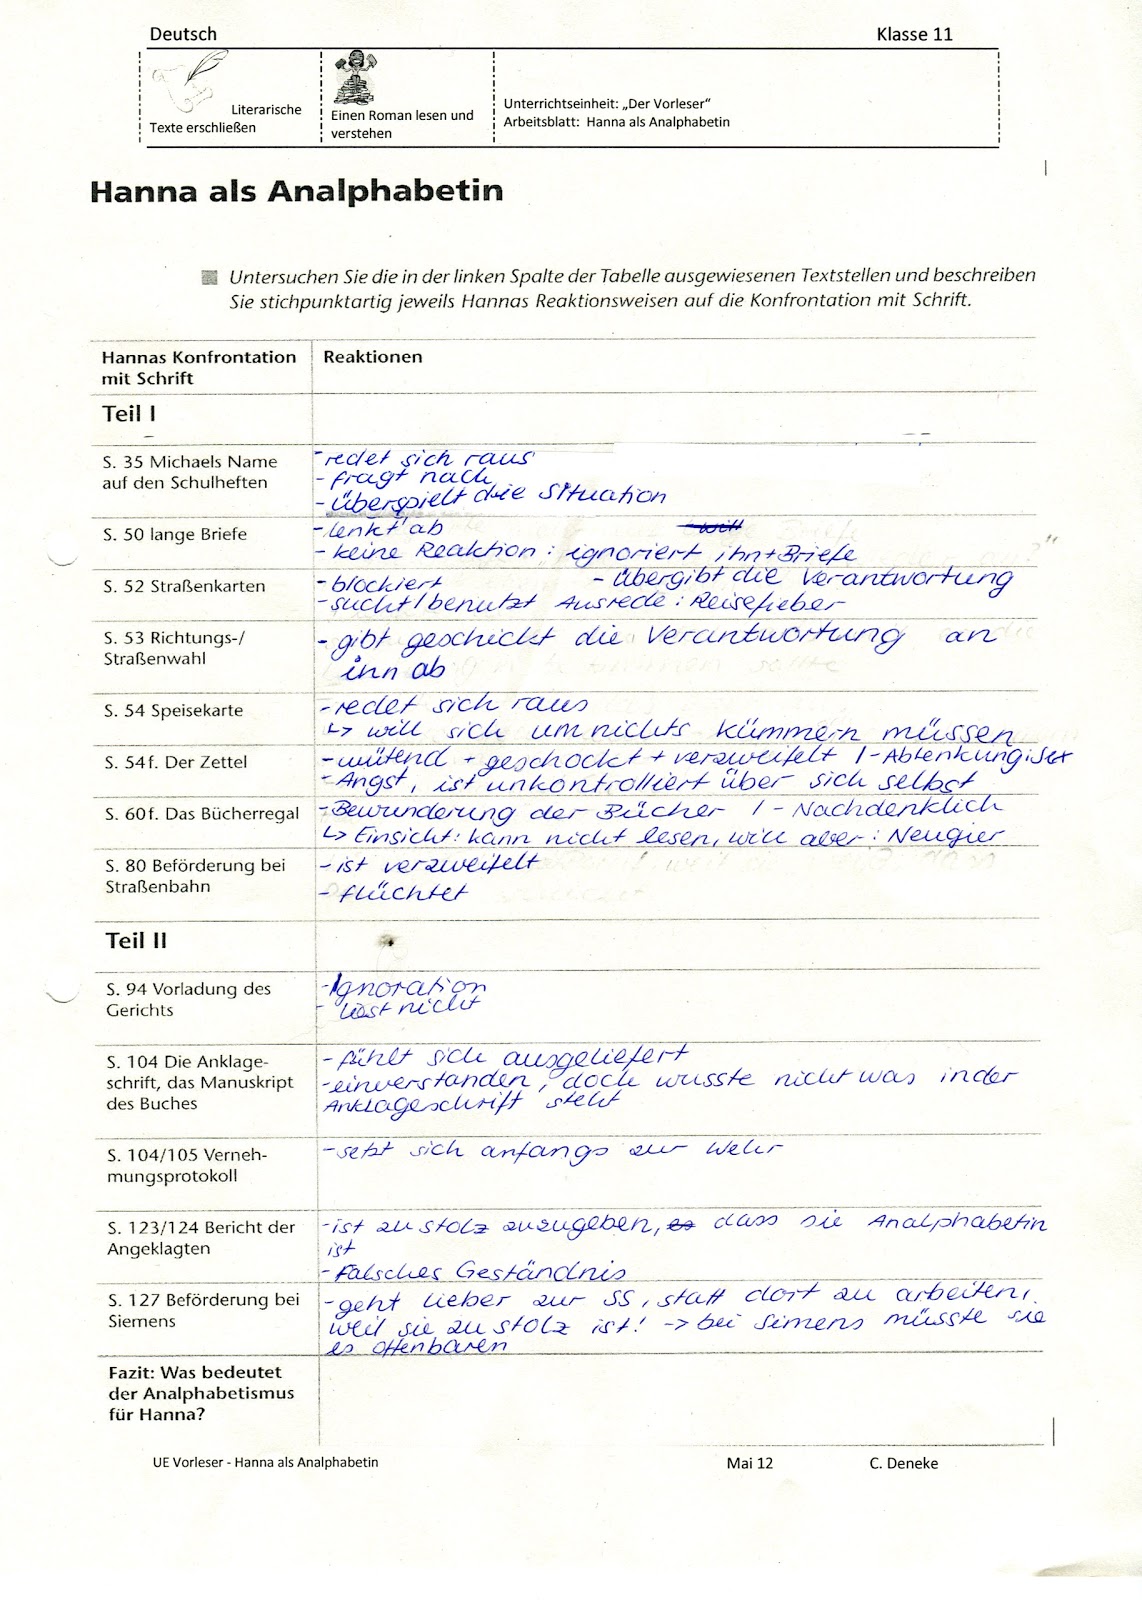 Deutsch Klasse 11
Literarische
Texte erschließen
Einen Roman lesen und
verstehen
Unterrichtseinheit: „Der Vorleser“
Arbeitsblatt: Hanna als Analphabetin
Hanna als Analphabetin
Untersuchen Sie die in der linken Spalte der Tabelle ausgewiesenen Textstellen und beschreiben
Sie stichpunktartig jeweils Hannas Reaktionsweisen auf die Konfrontation mit Schrift.
Hannas Konfrontation
mit Schrift
Reaktionen
Teil I
S. 35 Michaels Name
auf den Schulheften
- redet sich raus
- fragt nach
- überspielt die Situation
S. 50 lange Briefe
- lenkt ab will
- keine Reaktion: ignoriert ihn + Briefe
S. 52 Straßenkarten
- blockiert - übergibt die Verantwortung
- sucht/benutzt Ausrede: Reisefieber
S. 53 Richtungs-/
Straßenwahl
- gibt geschickt die Verantwortung an
ihn ab
S. 54 Speisekarte
- redet sich raus
↳ will sich um nichts kümmern müssen
S. 54 f. Der Zettel
- wütend + geschockt + verzweifelt / - Ablenkung: Sex
- Angst, ist unkontrolliert über sich selbst
S. 60 f. Das Bücherregal
- Bewunderung der Bücher / - Nachdenklich
↳ Einsicht: kann nicht lesen, will aber: Neugier
S. 80 Beförderung bei
Straßenbahn
- ist verzweifelt
- flüchtet
Teil II
S. 94 Vorladung des
Gerichts
- Ignoration
- liest nicht
S. 104 Die Anklage-
schrift, das Manuskript
des Buches
- fühlt sich ausgeliefert
- einverstanden, doch wusste nicht was in der
Anklageschrift steht
S. 104/105 Verneh-
mungsprotokoll
- setzt sich anfangs zur Wehr
S. 123/124 Bericht der
Angeklagten
- ist zu stolz zuzugeben, es dass sie Analphabetin
ist
- Falsches Geständnis
S. 127 Beförderung bei
Siemens
- geht lieber zur SS, statt dort zu arbeiten,
weil sie zu stolz ist! -> bei Simens müsste sie
es offenbaren
Fazit: Was bedeutet
der Analphabetismus
für Hanna?
UE Vorleser - Hanna als Analphabetin Mai 12 C. Deneke